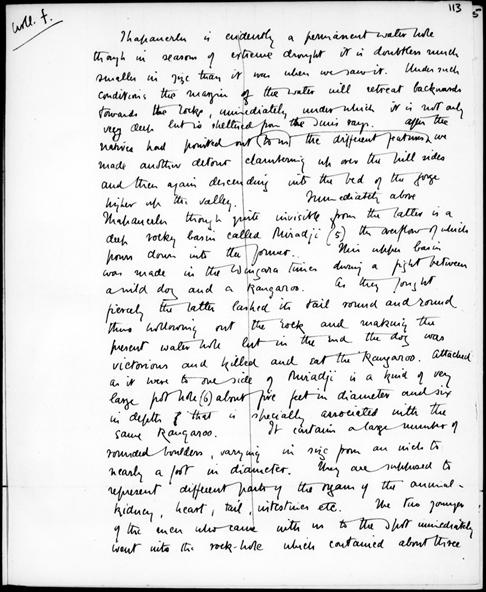 113
5
Thapanerlu is evidently a permanent water hole
though in seasons of extreme drought it is doubtless much
smaller in size than it was when we saw it. Under such
conditions the margin of the water will retreat backwards
towards the rocks, immediately under which it is not only
very deep but is sheltered from the suns rays. After the
natives had pointed out (to us) the different features we
made another detour clambering up over the hill sides
and then again descending into the bed of the gorge
higher up the valley. Immediately above
Thapanerlu though quite invisible from the latter is a
deep rocky basin called (5) the overflow of which
pours down into the former. This upper basin
was made in the Wingara times during a fight between
a wild dog and a Kangaroo. As they fought
fiercely the latter lashed its tail round and round
thus hollowing out the rock and making the
present water hole but in the end the dog was
victorious and killed and eat the Kangaroo. Attached
as it were to one side of is a kind of very
large pot hole (6) about five feet in diameter and six
in depth that is specially associated with the
same Kangaroo. It contains a large number of
rounded boulders, varying in size from an inch to
nearly a foot in diameter. They are supposed to
represent different parts of the organs of the animal -
kidney, heart, tail, intestines etc. The two younger
of the men who came with us to the spot immediately
went into the rock-hole which contained about three